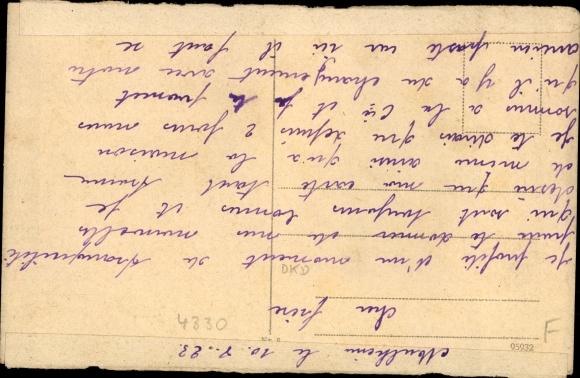 Mulheim le 10.8.23
cher frère
Je profite d'un moment de tranquilité
pour te donner de mes nouvelles
qui sont toujours bonnes et je
désire que ma carte tant comme
de même ainsi qu'à la maison
Je te dirais que depuis 2 jours nous
sommes à la Cie et je te promet
qu'il y a du changement avec notre
ancien poste car ici il faut se
DKD
4330
F
95932